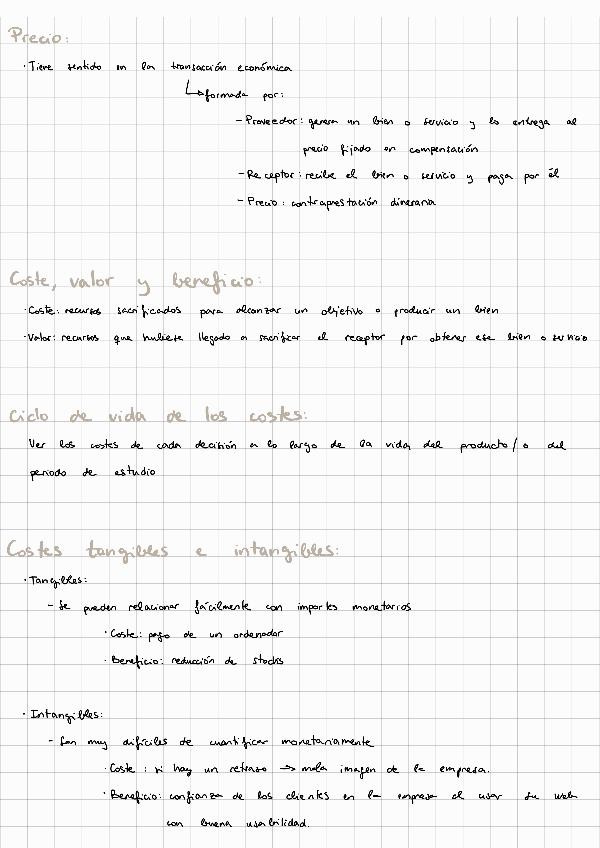 Precio:
· Tiene sentido en la transacción económica
↳ formada por:
- Proveedor: genera un bien o servicio y lo entrega al
precio fijado en compensación
- Receptor: recibe el bien o servicio y paga por él
- Precio: contraprestación dineraria
Coste, valor y beneficio:
· Coste: recursos sacrificados para alcanzar un objetivo o producir un bien
· Valor: recursos que hubiese llegado a sacrificar el receptor por obtener ese bien o servicio
Ciclo de vida de los costes:
Ver los costes de cada decisión a lo largo de la vida del producto / o del
periodo de estudio
Costes tangibles e intangibles:
· Tangibles:
- Se pueden relacionar fácilmente con importes monetarios
· Coste: pago de un ordenador
· Beneficio: reducción de stocks
· Intangibles:
- Son muy difíciles de cuantificar monetariamente
· Coste: si hay un retraso → mala imagen de la empresa.
· Beneficio: confianza de los clientes en la empresa al usar su web
con buena usabilidad.